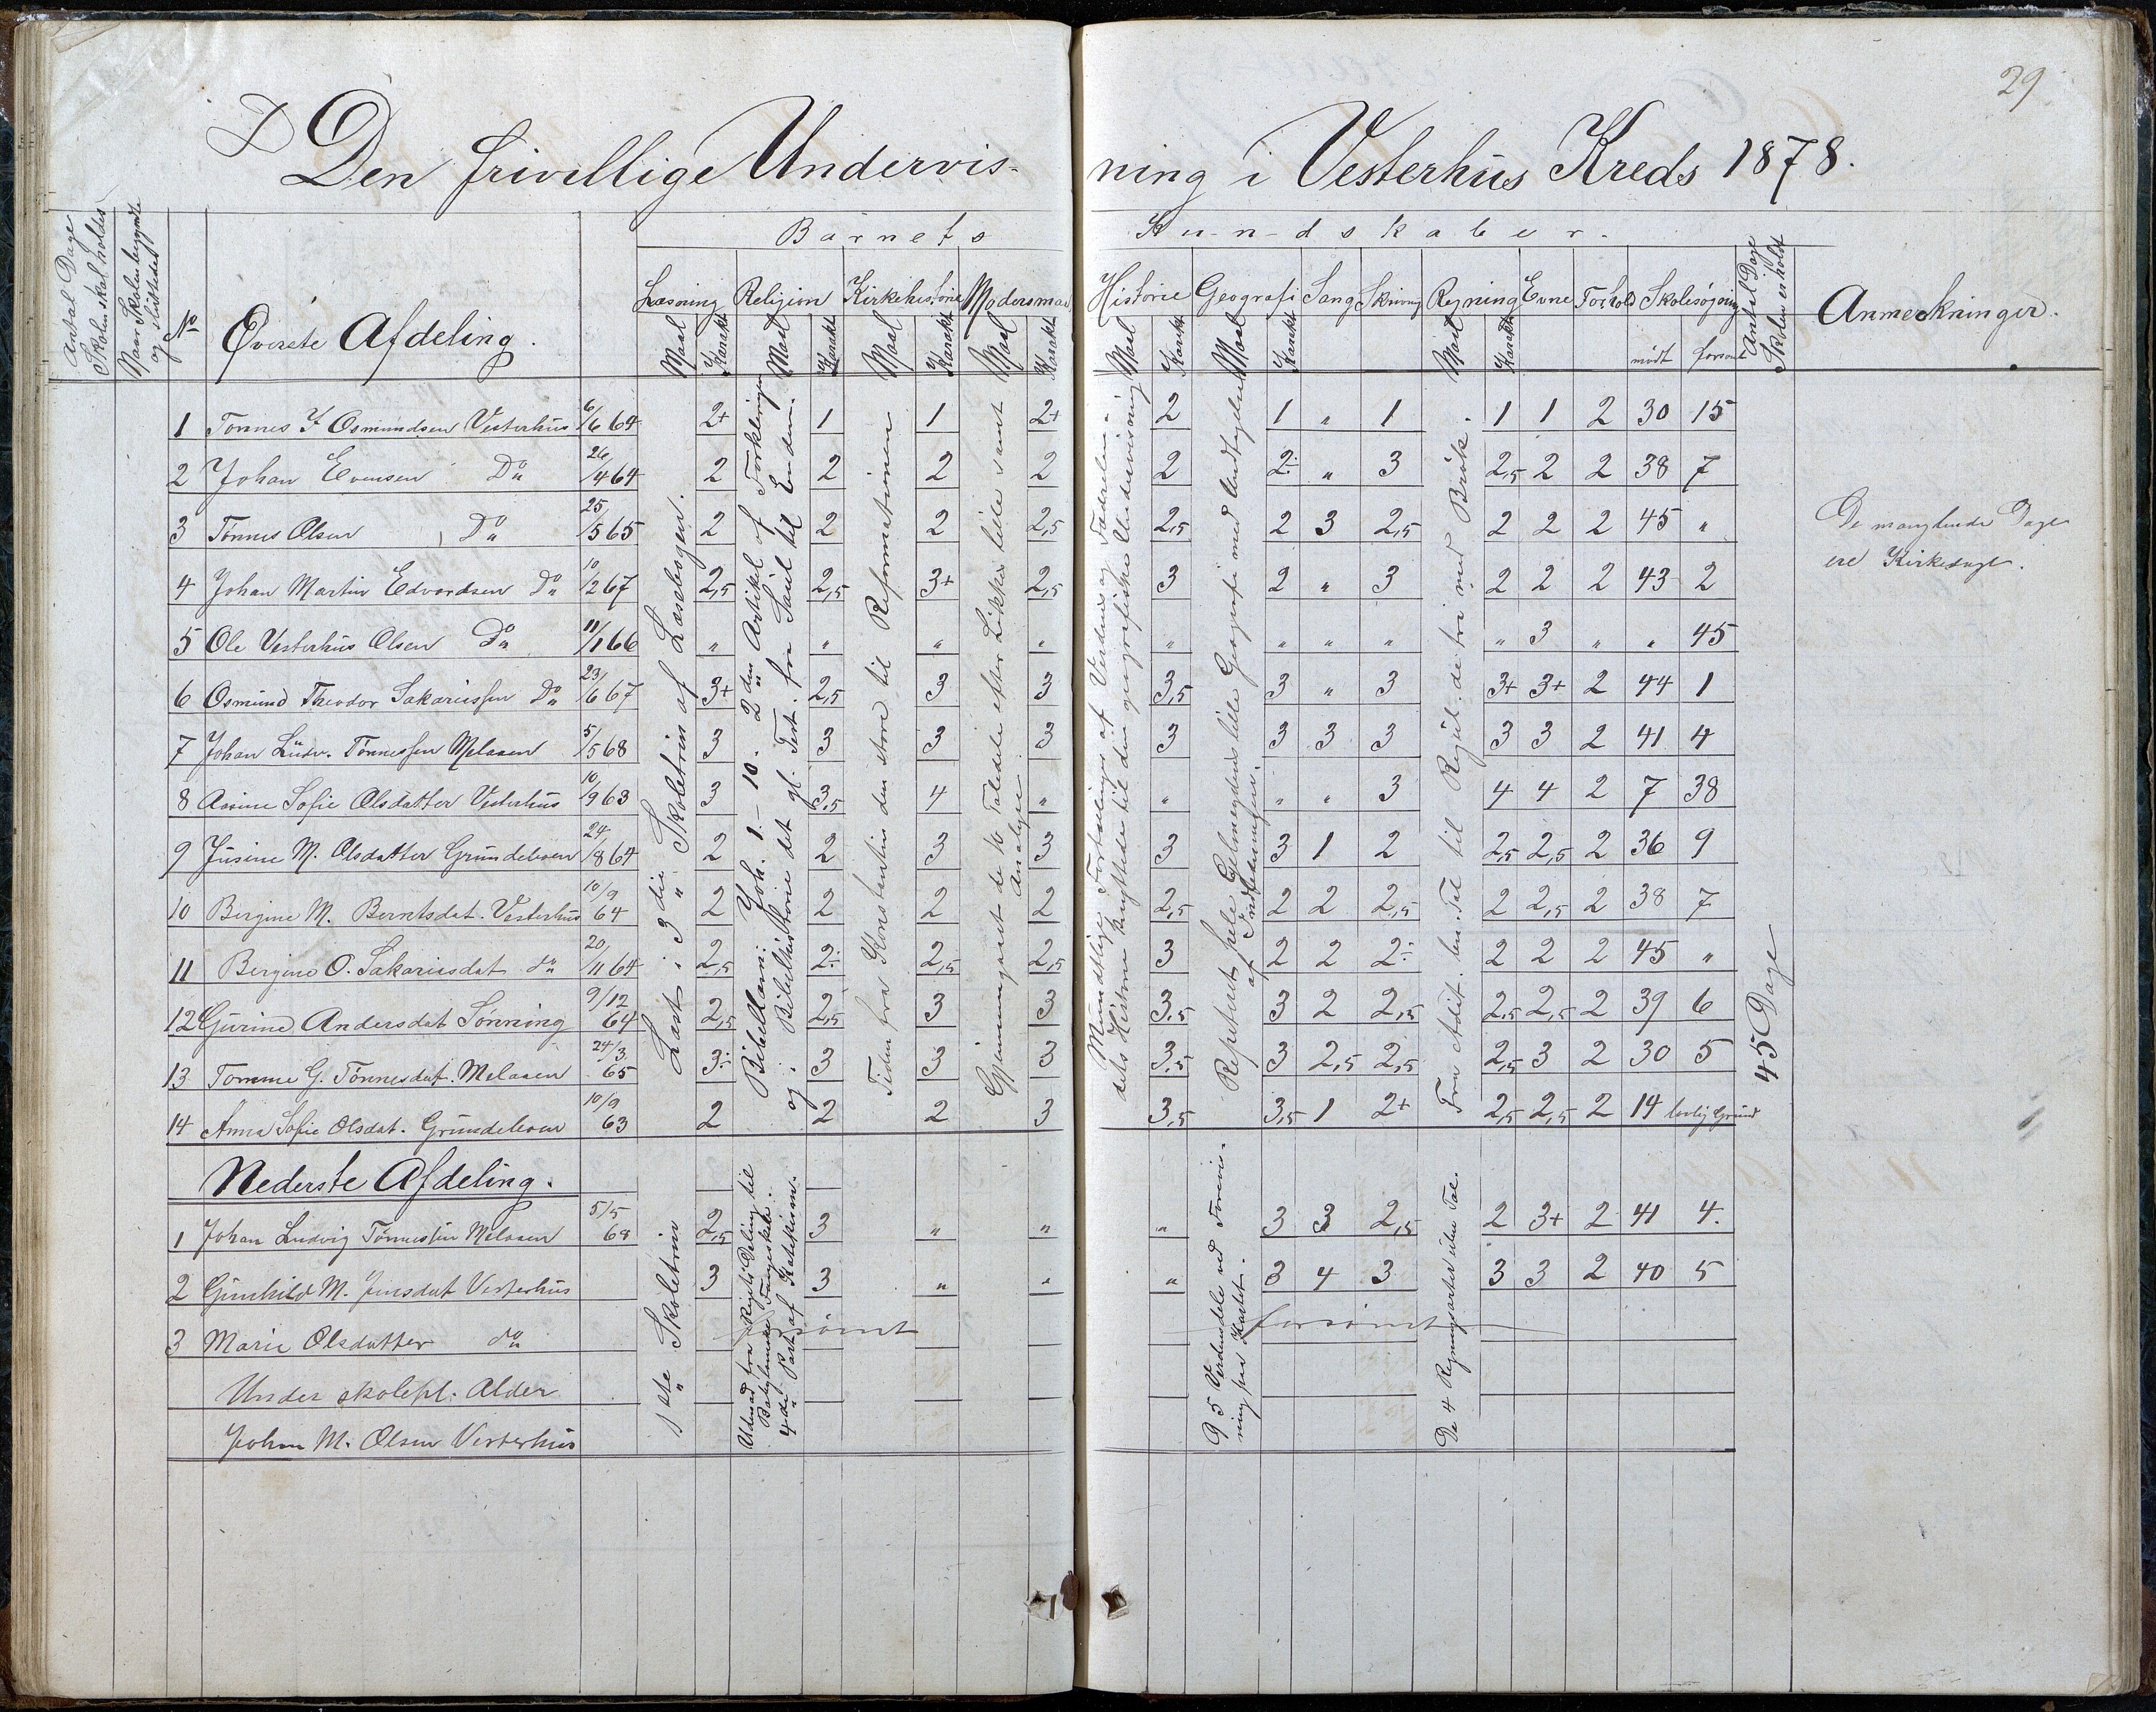 29
Den frivillige Undervisning i Vesterhus Kreds 1878.
Antal Dage Skolen skal holdes
Naar Skolen begyndte og sluttedes
No
Øverste Afdeling.
Barnets Kundskaber.
Læsning Religion Kirkehistorie Modersmaal Historie Geografi Sang Skrivning Regning Evne Forhold Skolesøgning
Antal Dage Skolen er holdt
Anmærkninger.
Maal Karakt Maal Karakt Maal Karakt Maal Karakt Maal Karakt Maal Karakt Maal Karakt mødt forsømt
1 Tønnes F Osmundsen Vesterhus 6/6 64 2+ 1 1 2+ 2 1 " 1 1 1 2 30 15
2 Johan Evensen Do 26/4 64 2 2 2 2 2 2÷ " 3 2,5 2 2 38 7
3 Tønnes Olsen Do 25/5 65 2 2 2 2,5 2,5 2 3 2,5 2 2 2 45 "
4 Johan Martin Edvardsen Do 10/2 67 2,5 2,5 3+ 2,5 3 2 " 3 2 2 2 43 2
5 Ole Vesterhus Olsen Do 11/1 66 " " " " " " " " " 3 " " 45
6 Osmund Theodor Sakariassen Do 23/6 67 3+ 2,5 3 3 3,5 3 " 3 3+ 3+ 2 44 1
7 Johan Ludv. Tønnessen Melaaen 5/5 68 3 3 3 3 3 3 3 3 3 3 2 41 4
8 Assine Sofie Olsdatter Vesterhus 10/9 63 3 3,5 4 " " " " 3 4 4 2 7 38
9 Jusine M. Olsdatter Grundeleven 24/8 64 2 2 3 3 3 3 1 2 2,5 2,5 2 36 9
10 Bergine M. Berntsdat. Vesterhus 10/9 64 2 2 2 2 2,5 2 2 2,5 2 2,5 2 38 7
11 Bergine O. Sakariasdat do 20/11 64 2,5 2÷ 2,5 2,5 3 2 2 2÷ 2 2 2 45 "
12 Gurine Andersdat Sønning 9/12 64 2,5 2,5 3 3 3,5 3 2 2,5 2,5 2,5 2 39 6
13 Tomine G. Tønnesdat. Melaaen 24/3 65 3÷ 3 3 3 3,5 3 2,5 2,5 2,5 3 2 30 5
14 Anna Sofie Olsdat. Grundeleven 10/9 63 2 2 2 3 3,5 3,5 1 2+ 2,5 2,5 2 14 lovlig Grund
Læst i 3die Skoletrin af Læsebogen.
Bibellæsn: Joh. 1.-10. 2den Artikel af Forklaringen
og Bibelhistorie det gl. Test. fra Saul til Enden.
Tiden fra Konstantin den store til Reformationen
Gjennemgaaet de 10 Taledele efter Løkkes lille samt
Analyse
Mundtlige Fortællinger af Verdens og Fædrelan-
dets Historie knyttede til den geografiske Undervisning
Repeteret hele Geelmuydens lille Geografi med Undtagelse
af Indledningen.
Fra Addit. ben. Tal til Regul. de tri med Brøk.
45 Dage
De manglende Dage
ere Kirkedage.
Nederste Afdeling.
1 Johan Ludvig Tønnessen Melaaen 5/5 68 2,5 3 " " " 3 3 2,5 2 3+ 2 41 4.
2 Gunhild M. Jensdat Vesterhus 3 3 " " " 3 4 3 3 3 2 40 5
3 Marie Olsdatter do forsømt forsømt
Under skolepl. Alder
Johan M. Olsen Vesterhus
1ste Skoletrin
Udenad fra Rigets Deling til
Babyloniske Fangenskab.
4de Part af Katekismen.
5 Verdensdele ved Forevis-
ning paa Kartet.
De 4 Regningsarter uden Tal.